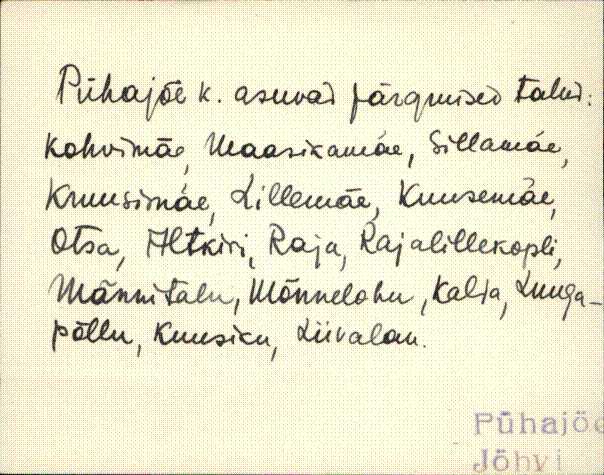 Pühajõe k. asuvad järgmised talud:
Kohvimäe, Maasikamäe, Sillamäe,
Kruusimäe, Lillemäe, Kuusemäe,
Otsa, Altkiri, Raja, Rajalillekopli,
Männitalu, Mõnnelohu, Kalda, Luuga-
põllu, Kuusiku, Liivalau.
Pühajõe
Jõhvi